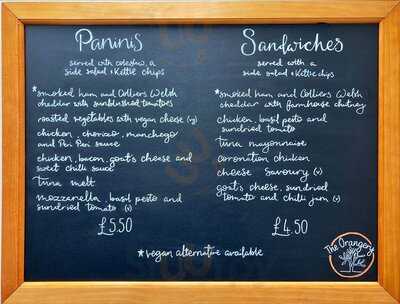 Paninis
served with coleslaw, a
side salad & Kettle chips
*smoked ham and Colliers Welsh
cheddar with sunblushed tomatoes
roasted vegetables with vegan cheese (vg)
chicken, chorizo, manchego
and Peri Peri sauce
chicken, bacon, goat's cheese and
sweet chilli sauce
Tuna melt
mozzarella, basil pesto and
sundried tomato (v)
£5.50
Sandwiches
served with a
side salad & Kettle chips
*smoked ham and Colliers Welsh
cheddar with farmhouse chutney
chicken, basil pesto and
sundried tomato
tuna mayonnaise
coronation chicken
cheese savoury (v)
goat's cheese, sundried
tomato and chilli jam (v)
£4.50
*vegan alternative available
The Orangery